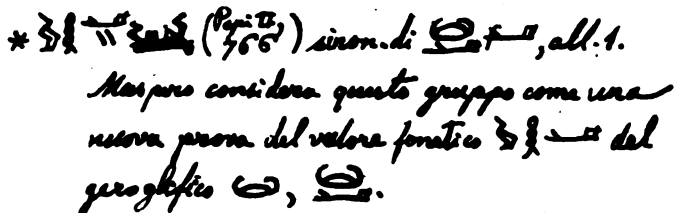 * (Pepi II, 766) sinon. di , all. 1.
Maspero considera questo gruppo come una
nuova prova del valore fonetico del
geroglifico , .